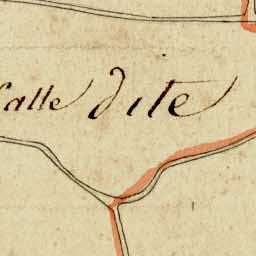 Calle dite